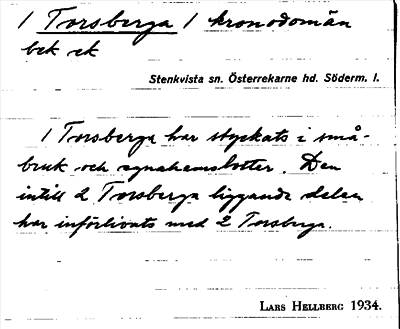 1 Torsberga 1 kronodomän
bek ek
Stenkvista sn. Österrekarne hd. Söderm. l.
1 Torsberga har styckats i små-
bruk och egnahemslotter. Den
intill 2 Torsberga liggande delen
har införlivats med 2 Torsberga.
LARS HELLBERG 1934.